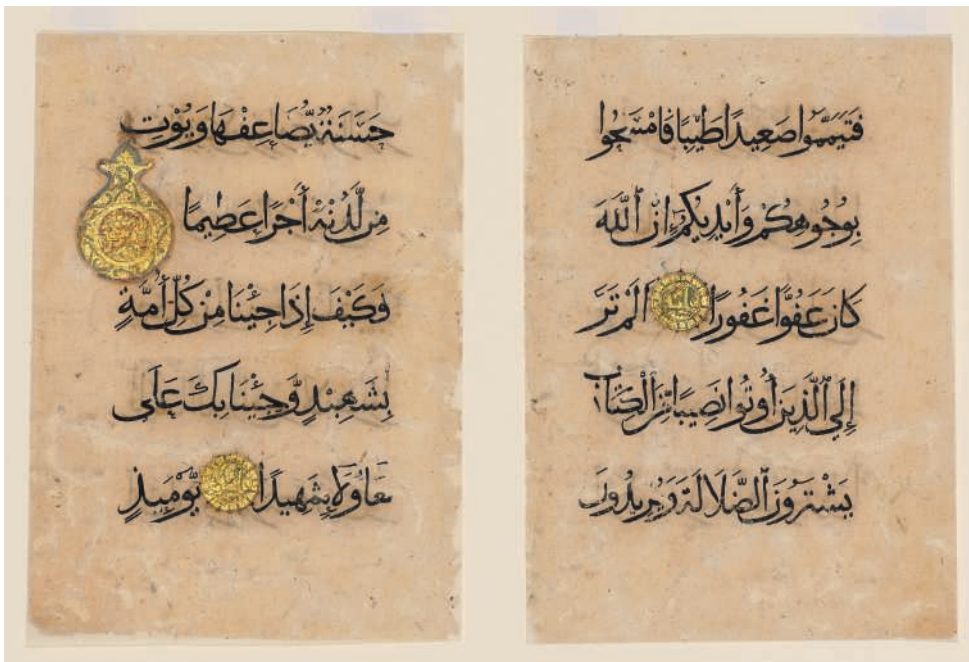 فَتَيَمَّمُوا صَعِيدًا طَيِّبًا فَامْسَحُوا
بِوُجُوهِكُمْ وَأَيْدِيكُمْ إِنَّ ٱللَّهَ
كَانَ عَفُوًّا غَفُورًا أَلَمْ تَرَ
إِلَى ٱلَّذِينَ أُوتُوا نَصِيبًا مِّنَ ٱلْكِتَابِ
يَشْتَرُونَ ٱلضَّلَالَةَ وَيُرِيدُونَ
حَسَنَةً يُّضَاعِفْهَا وَيُؤْتِ
مِن لَّدُنْهُ أَجْرًا عَظِيمًا
فَكَيْفَ إِذَا جِئْنَا مِنْ كُلِّ أُمَّةٍ
بِشَهِيدٍ وَّجِئْنَا بِكَ عَلَى
هَاؤُلَاءِ شَهِيدًا يَّوْمَئِذٍ